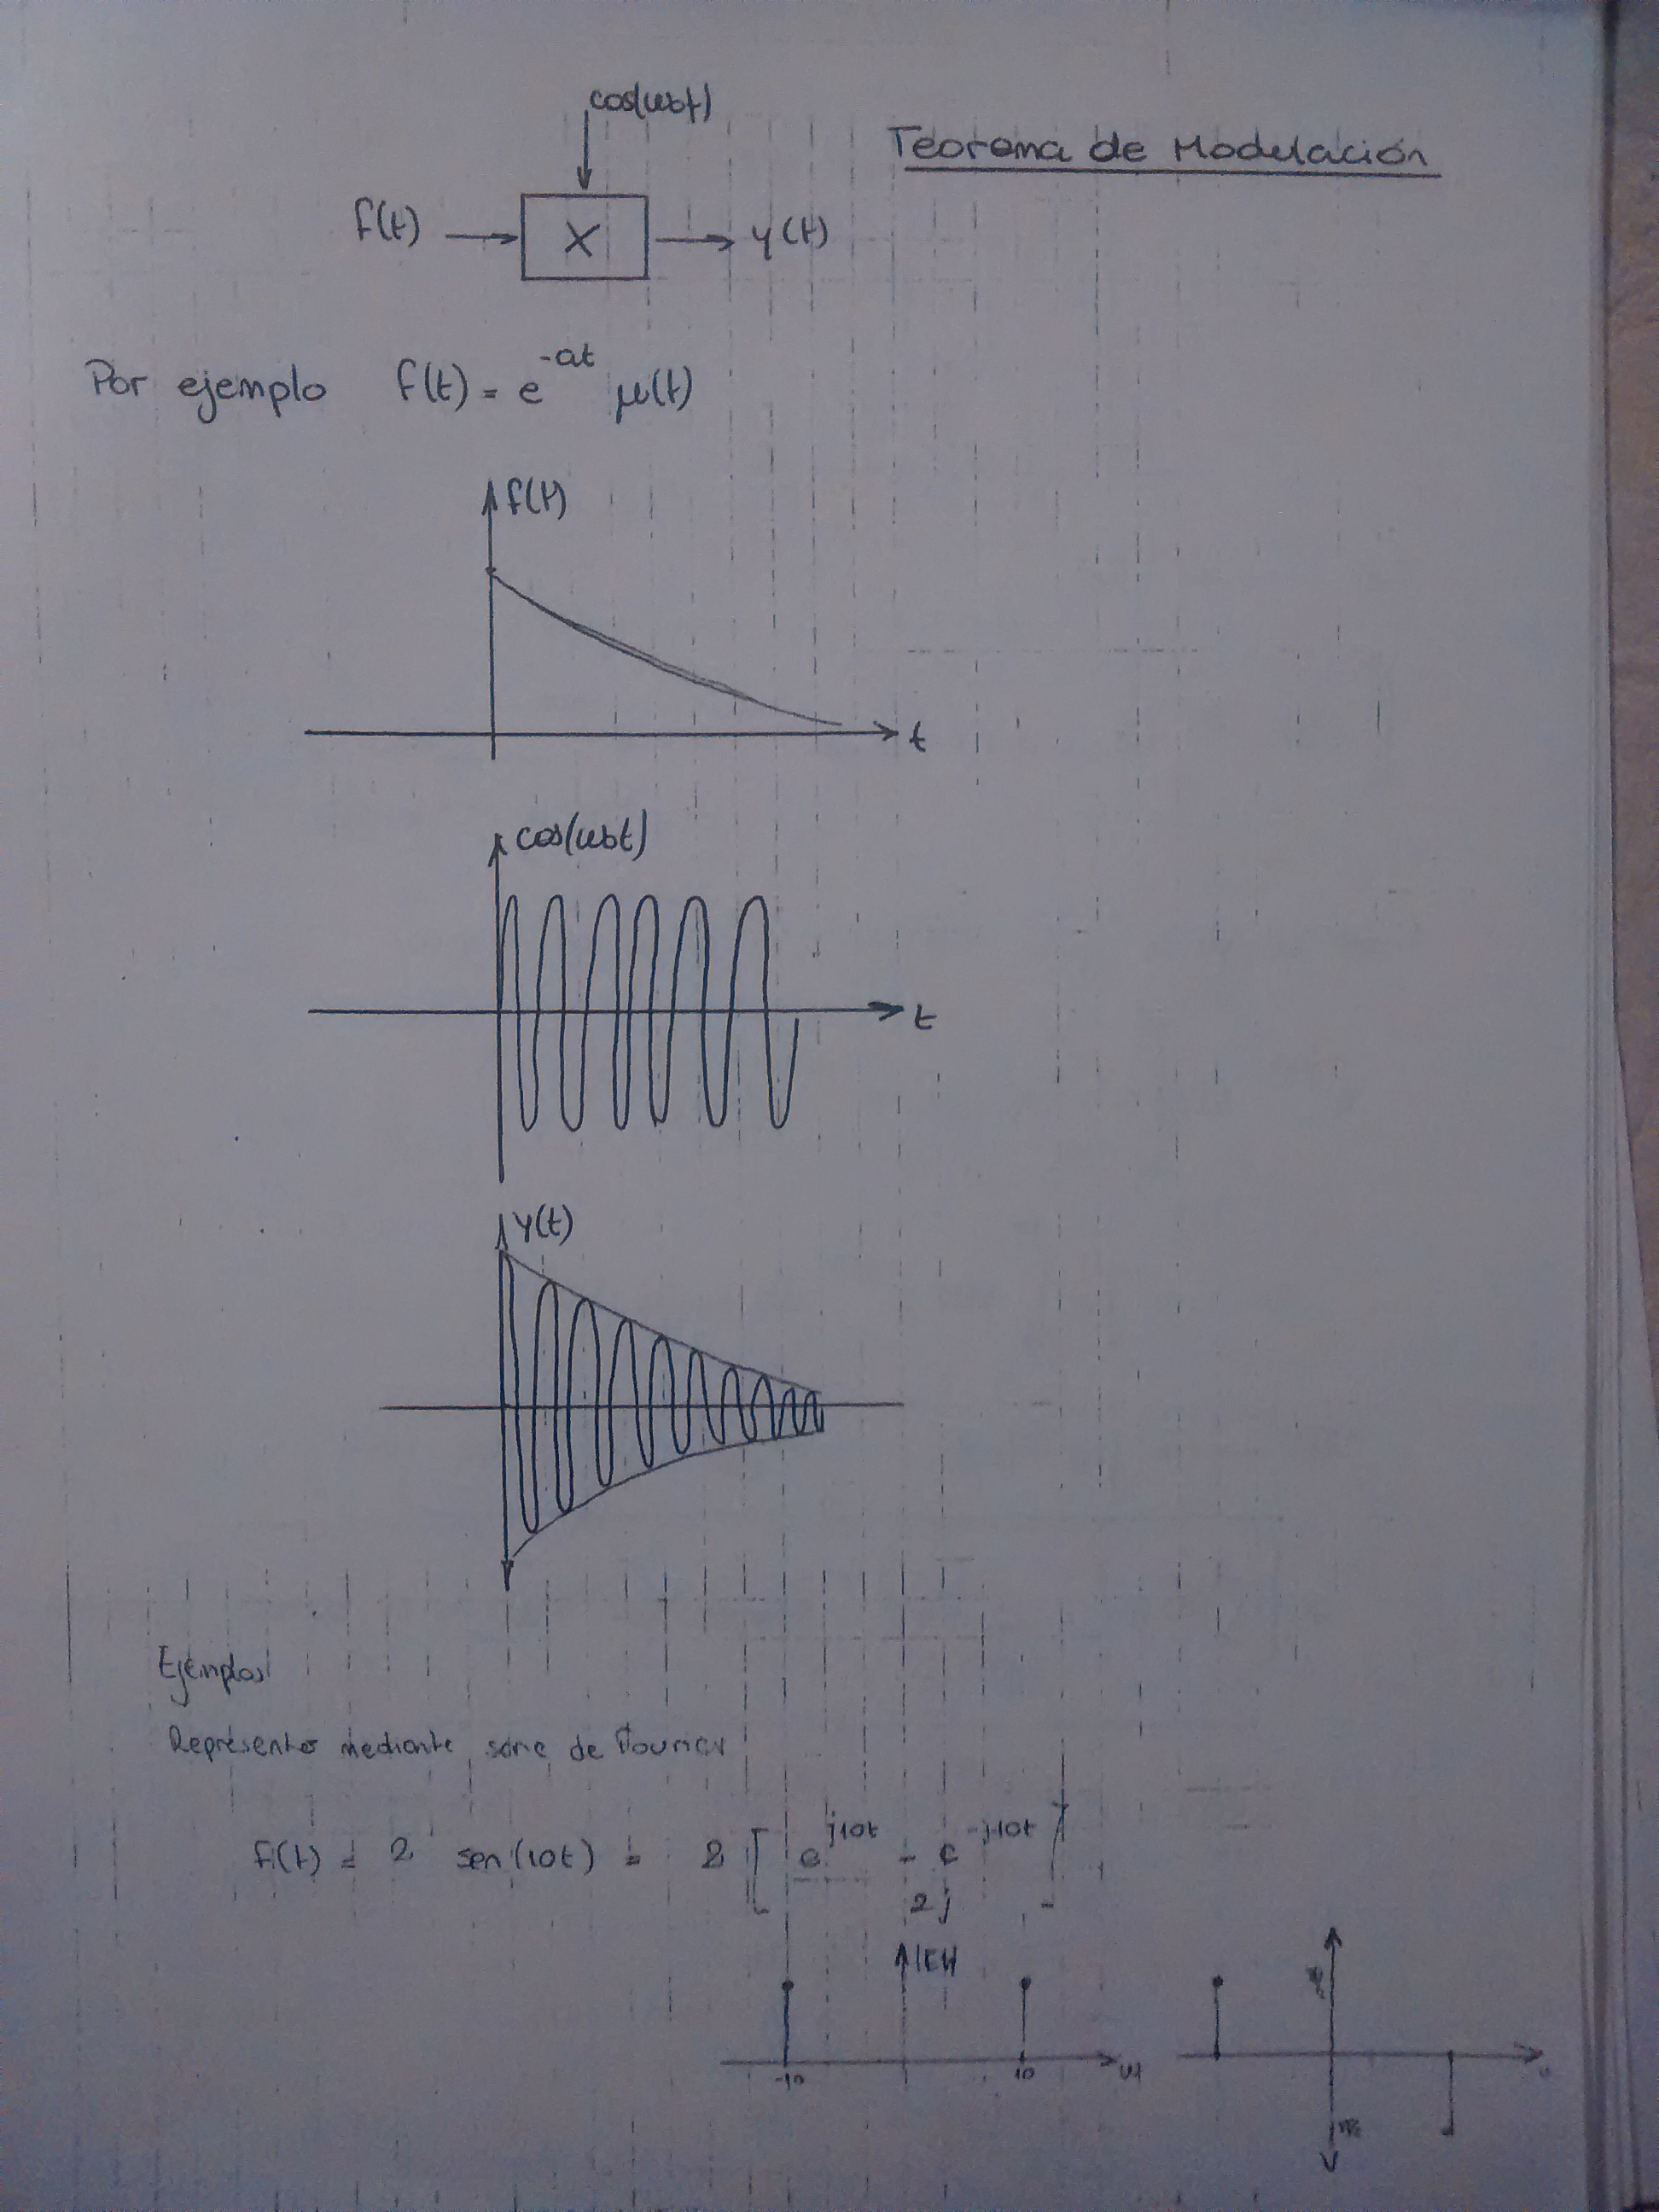 cos(ω₀t)
Teorema de Modulación
f(t) → X → y(t)
Por ejemplo f(t) = e^-at μ(t)
f(t)
t
cos(ω₀t)
t
y(t)
Ejemplos
Representar mediante serie de Fourier
f(t) = 2 sen(10t) = 2 [ e^j10t - e^-j10t / 2j ]
-10 10 ω